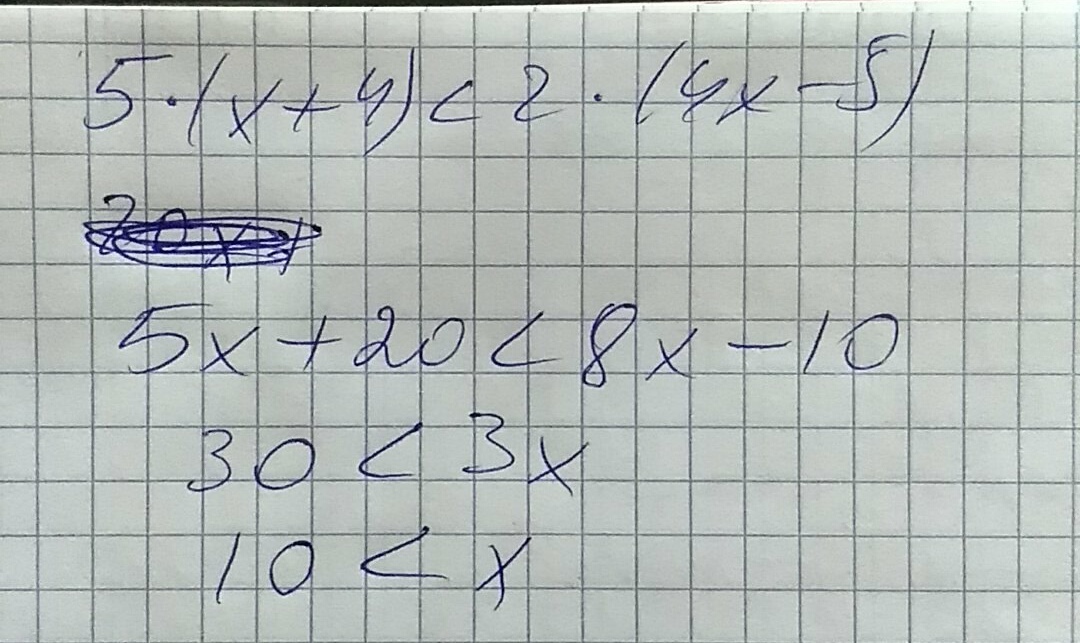 5·(x+4)<2·(4x-5)
5x+20<8x-10
30<3x
10<x